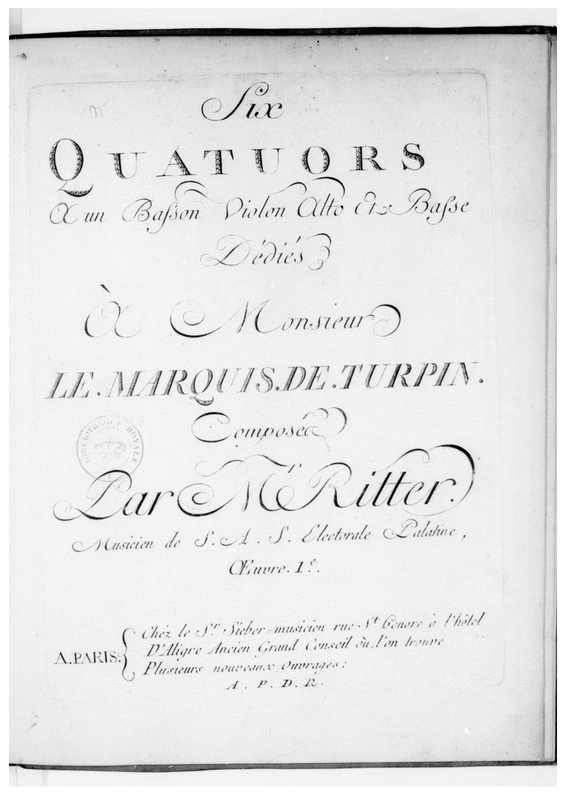 Six
QUATUORS
A un Basson Violon Alto Et Basse
Dédiés
À Monsieur
LE . MARQUIS . DE . TURPIN .
Composée
Par Mr Ritter.
Musicien de S. A. S. Electorale Palatine,
Œuvre. 1e.
A. PARIS.
Chéz le Sr. Sieber musicien rue St. honoré à l'hôtel
D'Aligre Ancien Grand Conseil où l'on trouve
Plusieurs nouveaux Ouvrages:
A . P . D . R .
BIBLIOTHEQUE ROYALE